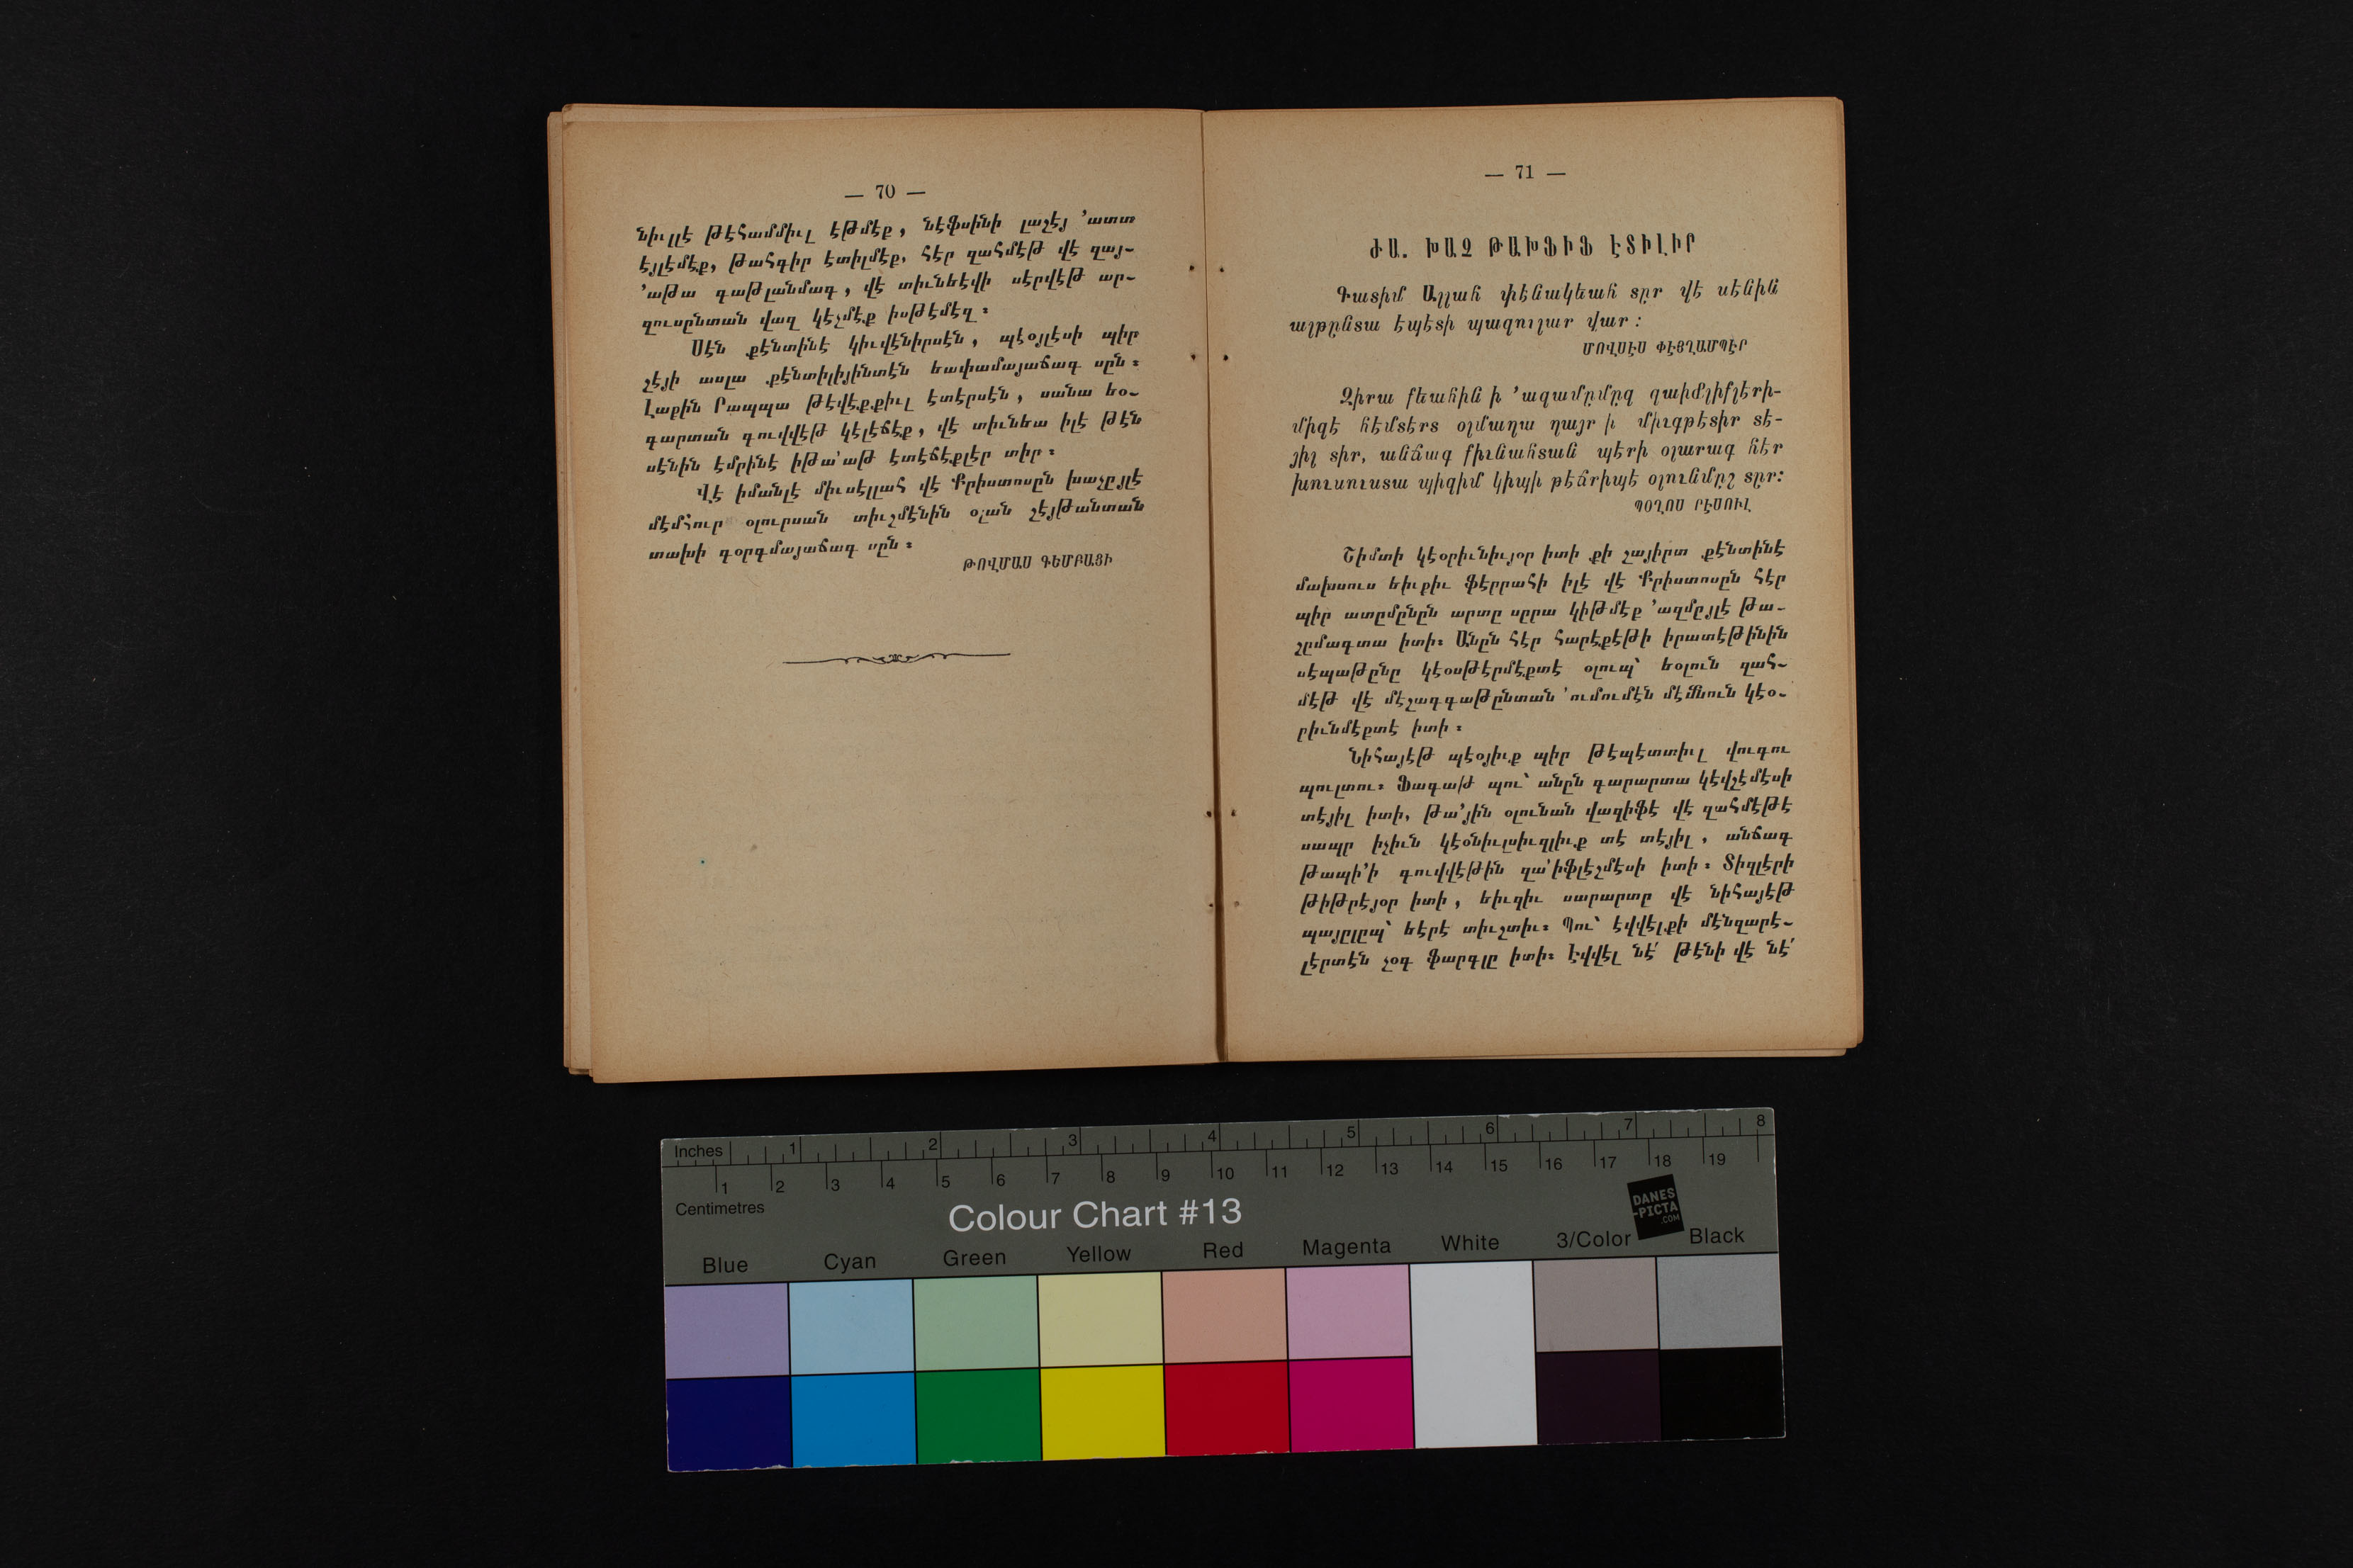 — 70 —
նիւլլէ թէհամմիւլ էթմէք, նէֆսինի լաշէյ ՚ատտ
էյլէմէք, թահգիր էտիլմէք, հէր զահմէթ վէ զայ-
՚աթա գաթլանմագ, վէ տիւնեէվի սէրվէթ ար-
զուսընտան վազ կէչմէք իսթէմէզ։
Սէն քէնտինէ կիւվէնիրսէն, պէօյլէսի պիր
շէյի ասլա քէնտիլիյինտէն եափամայաճագ սըն։
Լաքին Րապպա թէվէքքիւլ էտէրսէն, սանա եօ-
գարտան գուվվէթ կէլէճէք, վէ տիւնեա իլէ թէն
սէնին էմրինէ իթա՚աթ էտէճէքլէր տիր։
Վէ իմանլէ միւսէլլահ վէ Քրիստոսըն խաչըյլէ
մէմհուր օլուրսան տիւշմէնին օլան շէյթանտան
տախի գօրգմայաճագ սըն։
ԹՈՎՄԱՍ ԳԵՄԲԱՑԻ
— 71 —
ԺԱ. ԽԱՉ ԹԱԽՖԻՖ ԷՏԻԼԻՐ
Գատիմ Ալլահ փէնակեահ տըր վէ սէնին
ալթընտա էպէտի պազուլար վար։
ՄՈՎՍԷՍ ՓԷՅՂԱՄՊԷՐ
Զիրա քեահին ի ՚ազամըմըզ զաիմլիքլերի-
միզէ հէմտէրտ օլմաղա ղայր ի միւգթէտիր տէ-
յիլ տիր, անճագ քիւնահտան պէրի օլարագ հէր
խուսուստա պիզիմ կիպի թէճրիպէ օլունմըշ տըր։
ՊՕՂՈՍ ՐԷՍՈՒԼ
Շիմտի կէօրիւնիւյօր իտի քի շայիրտ քէնտինէ
մախսուս եիւքիւ ֆէրրահի իլէ վէ Քրիստոսըն հէր
պիր ատըմընըն արտը սըրա կիթմէք ՚ազմըյլէ թա-
շըմագտա իտի։ Անըն հէր հարէքէթի իրատէթինին
սէպաթընը կէօսթէրմէքտէ օլուպ՝ եօլուն զահ-
մէթ վէ մէշագգաթընտան ՚ումումէն մէմնուն կէօ-
րիւնմէքտէ իտի։
Նիհայէթ պէօյիւք պիր թէպէտտիւլ վուգու
պուլտու։ Ֆագաթ պու՝ անըն գարարտա կէվշէմէսի
տէյիլ իտի, թա՚յին օլունան վազիֆէ վէ զահմէթէ
սապր իչիւն կէօնիւլսիւզլիւք տէ տէյիլ, անճագ
թապի՚ի գուվվէթին զա՚իֆլէշմէսի իտի։ Տիզլէրի
թիթրէյօր իտի, եիւզիւ սարարտը վէ նիհայէթ
պայըլըպ՝ եէրէ տիւշտիւ։ Պու՝ էվվէլքի մէնզարէ-
լէրտէն չօգ ֆարգլը իտի։ Էվվէլ նէ՛ թէնի վէ նէ՛
Inches 1 2 3 4 5 6 7 8
1 2 3 4 5 6 7 8 9 10 11 12 13 14 15 16 17 18 19
Centimetres
Colour Chart #13
DANES
-PICTA
.COM
Blue Cyan Green Yellow Red Magenta White 3/Color Black